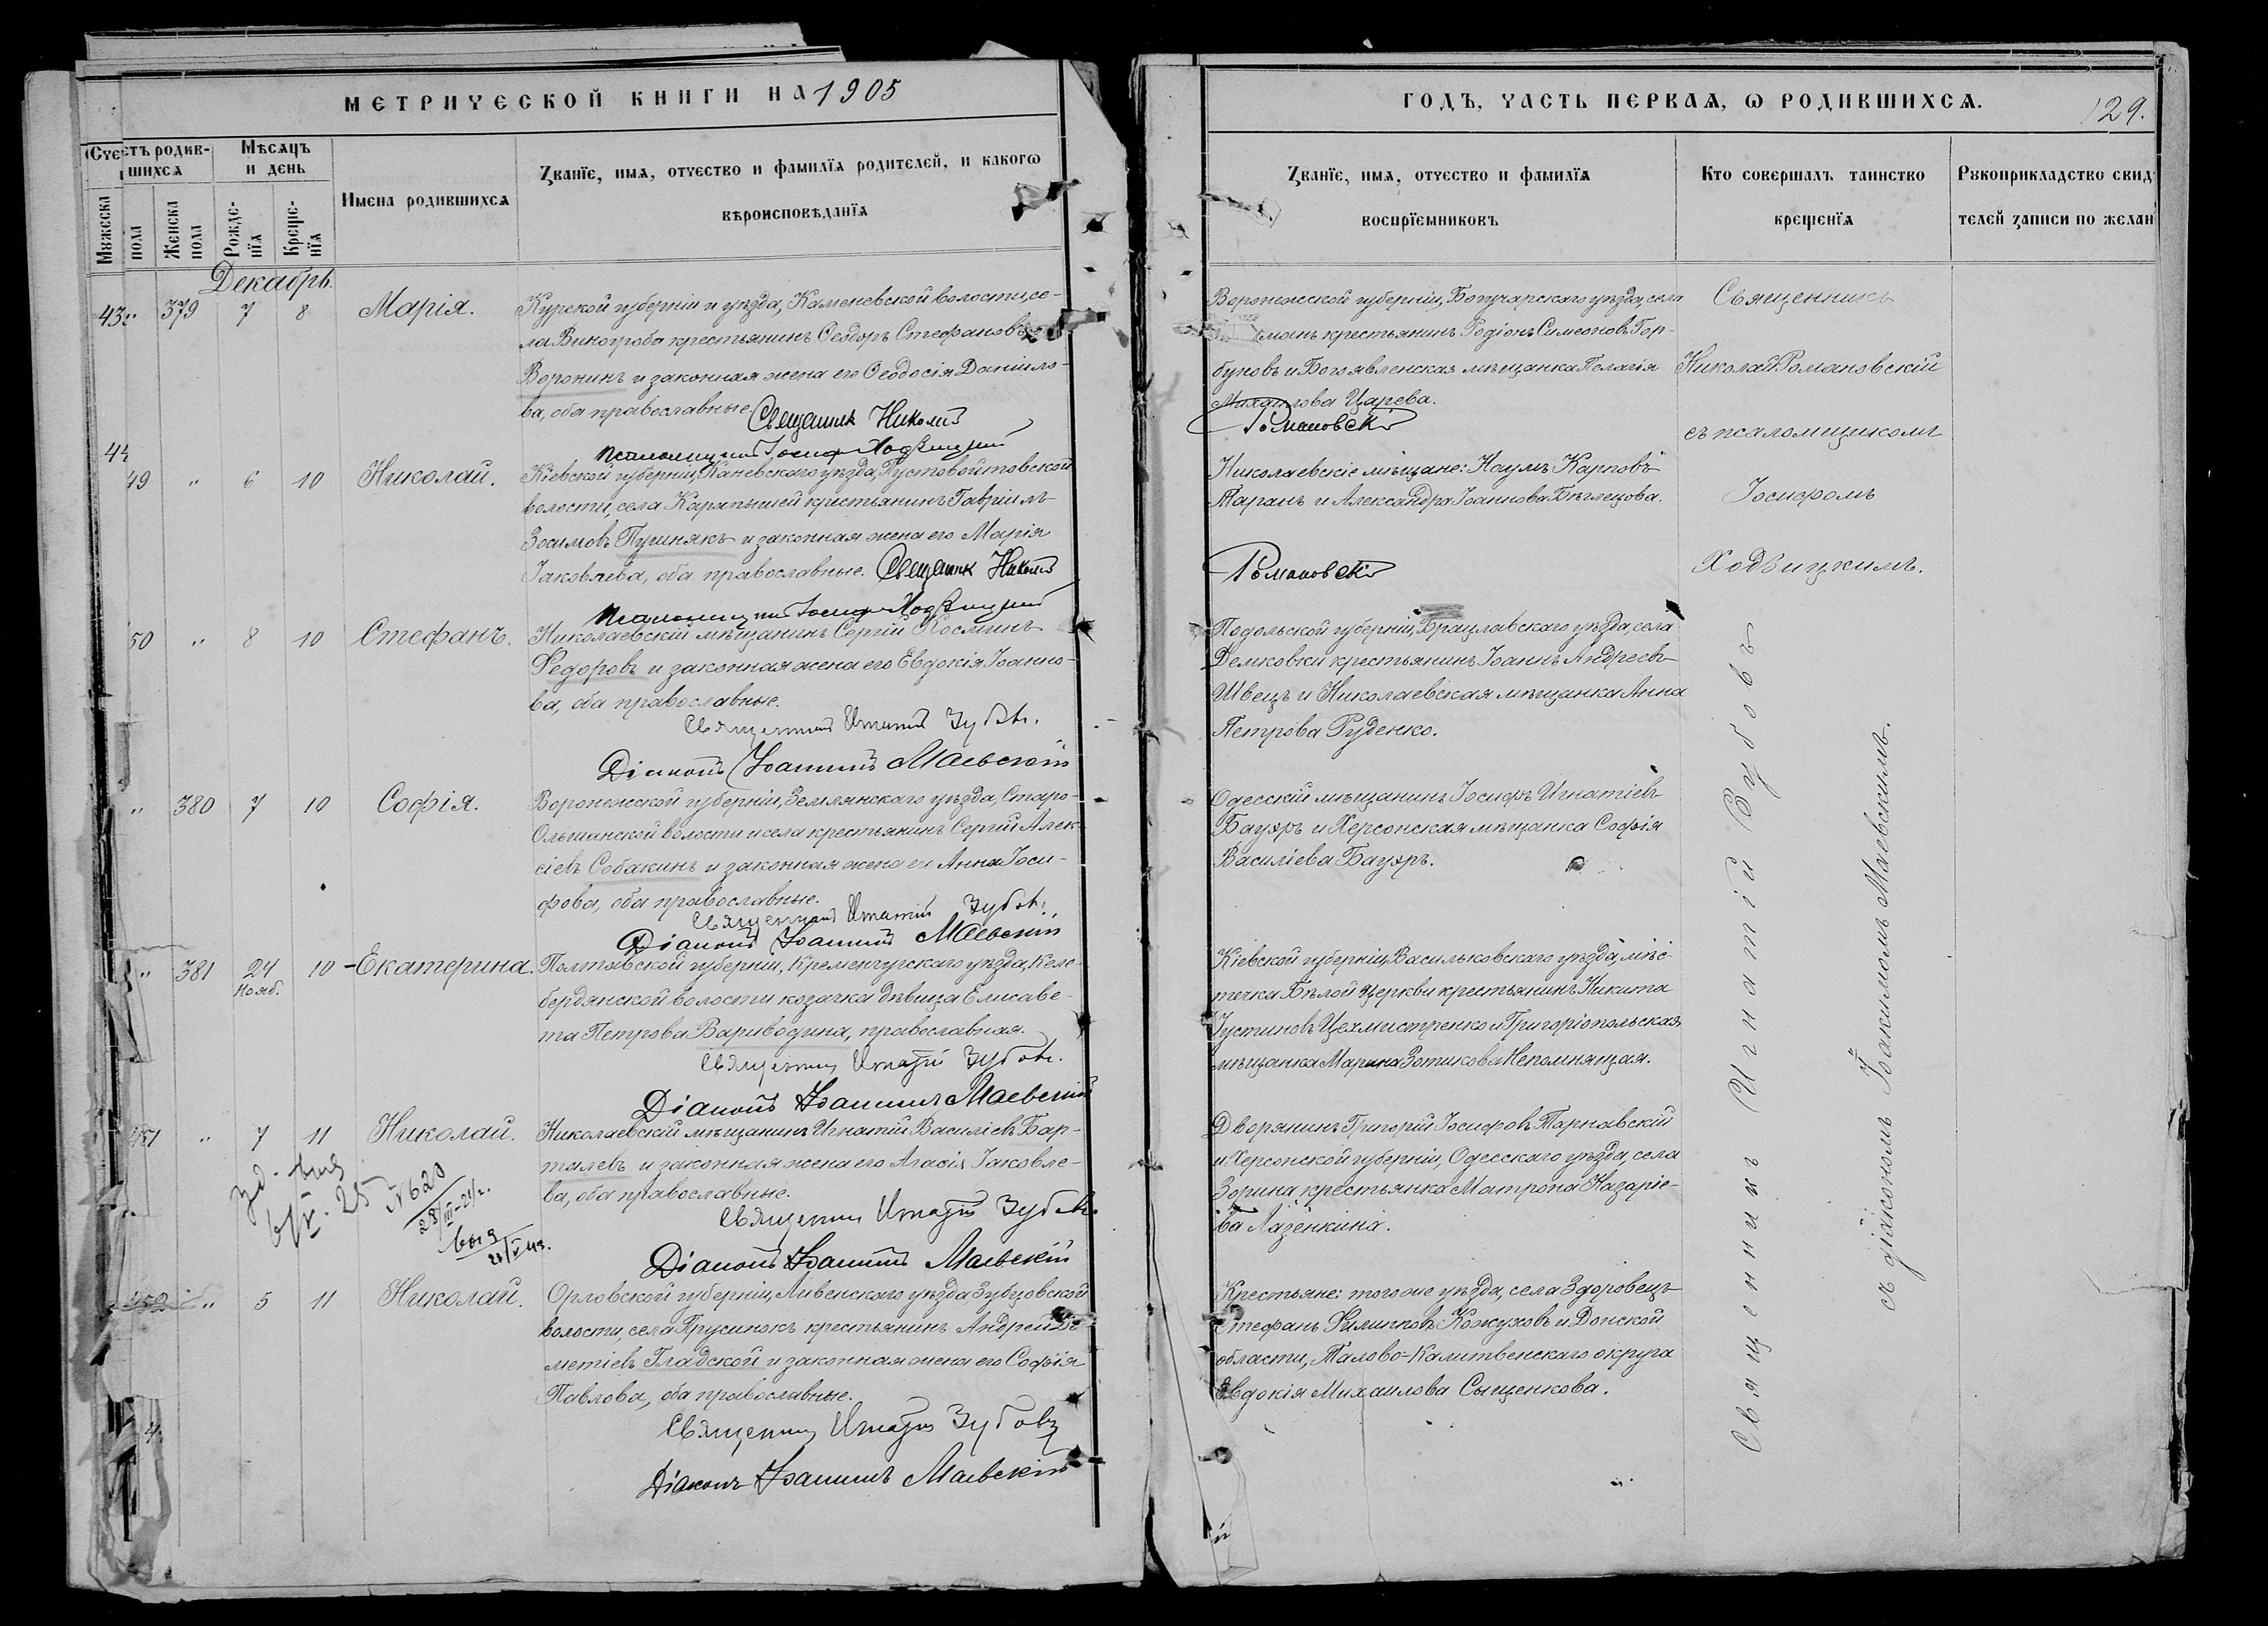 МЕТРИЧЕСКОЙ КНИГИ НА 1905
ГОДЪ, ЧАСТЬ ПЕРВАЯ, Ѡ РОДИВШИХСЯ.
129.
Счетъ родив-
шихся
Мѣсяцъ
и день
Имена родившихся
Званїе, имя, отчество и фамилїя родителей, и какогѡ
вѣроисповѣданїя
Мужеска пола
Женска пола
Рожде-
нїя
Креще-
нїя
Званїе, имя, отчество и фамилїя
воспрїемниковъ
Кто совершалъ таинство
крещенїя
Рукоприкладство свид
телей записи по желан
Декабрь.
" 379 7 8 Марія.
Курской губерніи и уѣзда, Каменевской волости, се-
ла Виногроба крестьянинъ Ѳеодоръ Стефановъ
Воронинъ и законная жена его Ѳеодосія Даніило-
ва, оба православные.
Священникъ Николай
Псаломщикъ Іосифъ Ходвицкій
Воронежской губерніи, Богучарскаго уѣзда, села
крестьянинъ Родіонъ Симеоновъ Гор-
буновъ и Богоявленская мѣщанка Пелагія
Михаилова Царева.
Романовскій
Священникъ
Николай Романовскій
съ псаломщикомъ
Іосифомъ
Ходвицкимъ.
49 " 6 10 Николай.
Кіевской губерніи, Каневскаго уѣзда, Пустовойтовской
волости, села Карапышей крестьянинъ Гавріилъ
Зосимовъ Пушнякъ и законная жена его Марія
Іаковлева, оба православные. Священникъ Николай
Псаломщикъ Іосифъ Ходвицкій
Николаевскіе мѣщане: Наумъ Карповъ
Таранъ и Александра Іоаннова Бѣглецова.
Романовскій
50 " 8 10 Стефанъ.
Николаевскій мѣщанинъ Сергій Косминъ
Ѳедоровъ и законная жена его Евдокія Іоанно-
ва, оба православные.
Священникъ Игнатій Зубовъ.
Діаконъ Іоакимъ Маевскій
Подольской губерніи, Брацлавскаго уѣзда, села
Демковки крестьянинъ Іоаннъ Андреевъ
Швецъ и Николаевская мѣщанка Анна
Петрова Руденко.
Священникъ Игнатій Зубовъ
съ діакономъ Іоакимомъ Маевскимъ.
" 380 7 10 Софія.
Воронежской губерніи, Землянскаго уѣзда, Старо-
Ольшанской волости и села крестьянинъ Сергій Алек-
сіевъ Собакинъ и законная жена его Анна Іоси-
фова, оба православные.
Священникъ Игнатій Зубовъ.
Діаконъ Іоакимъ Маевскій
Одесскій мѣщанинъ Іосифъ Игнатіевъ
Бауэръ и Херсонская мѣщанка Софія
Василіева Бауэръ.
" 381 24 10 Екатерина.
Нояб.
Полтавской губерніи, Кременчугскаго уѣзда, Келе-
бердянской волости козачка дѣвица Елисаве-
та Петрова Вариводина, православная.
Священникъ Игнатій Зубовъ.
Діаконъ Іоакимъ Маевскій
Кіевской губерніи, Васильковскаго уѣзда, мѣс-
течка Бѣлой Церкви крестьянинъ Никита
Іустиновъ Цехмистренко и Григоріопольская
мѣщанка Марина Зотикова Непомнящая.
451 " 7 11 Николай.
Николаевскій мѣщанинъ Игнатій Василіевъ Бар-
талевъ и законная жена его Агаѳія Іаковле-
ва, оба православные.
Священникъ Игнатій Зубовъ.
Діаконъ Іоакимъ Маевскій
Дворянинъ Григорій Іосифовъ Тарнавскій
и Херсонской губерніи, Одесскаго уѣзда, села
Зорина крестьянка Матрона Назаріе-
ва Лазенкина.
№620
452 " 5 11 Николай.
Орловской губерніи, Ливенскаго уѣзда, Зубцовской
волости, села Прусинокъ крестьянинъ Андрей Ди-
метіевъ Гладской и законная жена его Софія
Павлова, оба православные.
Священникъ Игнатій Зубовъ
Діаконъ Іоакимъ Маевскій
Крестьяне: того же уѣзда, села Здоровецъ
Стефанъ Филипповъ Кожуховъ и Донской
области, Талово-Калитвенскаго округа
Евдокія Михаилова Сыщенкова.